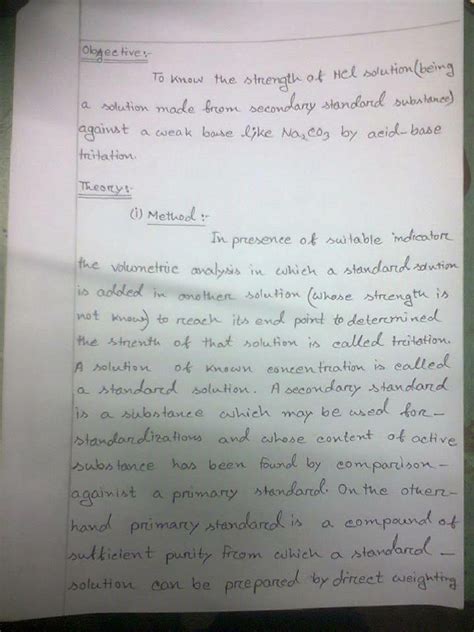 Obgective:-
To know the strength of Hcl solution (being
a solution made from secondary standard substance)
against a weak base like Na2CO3 by acid-base
tritation.
Theory:-
(i) Method :-
In presence of suitable indicator
the volumetric analysis in which a standard solution
is added in another solution (whose strength is
not know) to reach its end point to determined
the strenth of that solution is called tritation.
A solution of known concentration is called
a standard solution. A secondary standard
is a substance which may be used for-
standardizations and whose content of active
substance has been found by comparison-
againist a primary standard. On the other-
hand primary standard is a compound of
sufficient purity from which a standard -
solution can be prepared by direct weighting